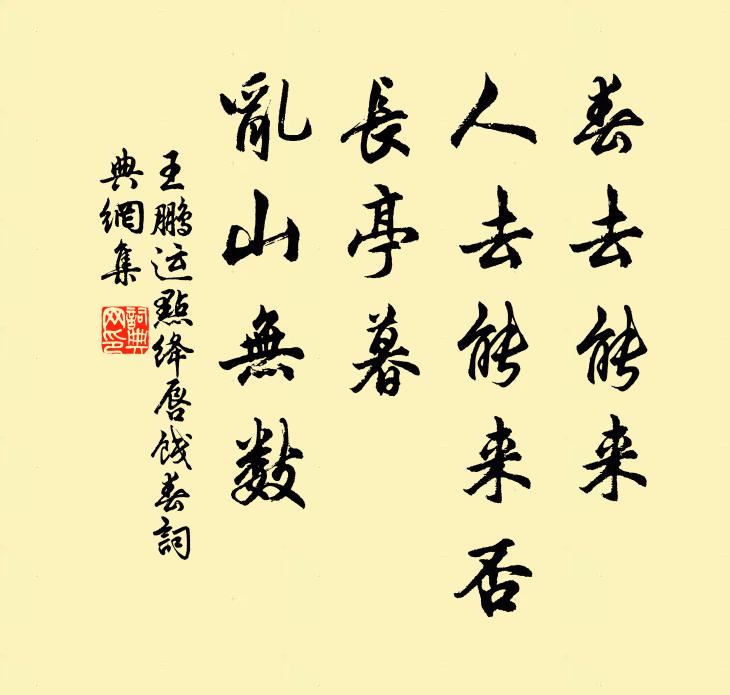 春去能来
人去能来否
長亭暮
亂山無数
王鵬运點绛唇餞春詞
典網集
詞典網印